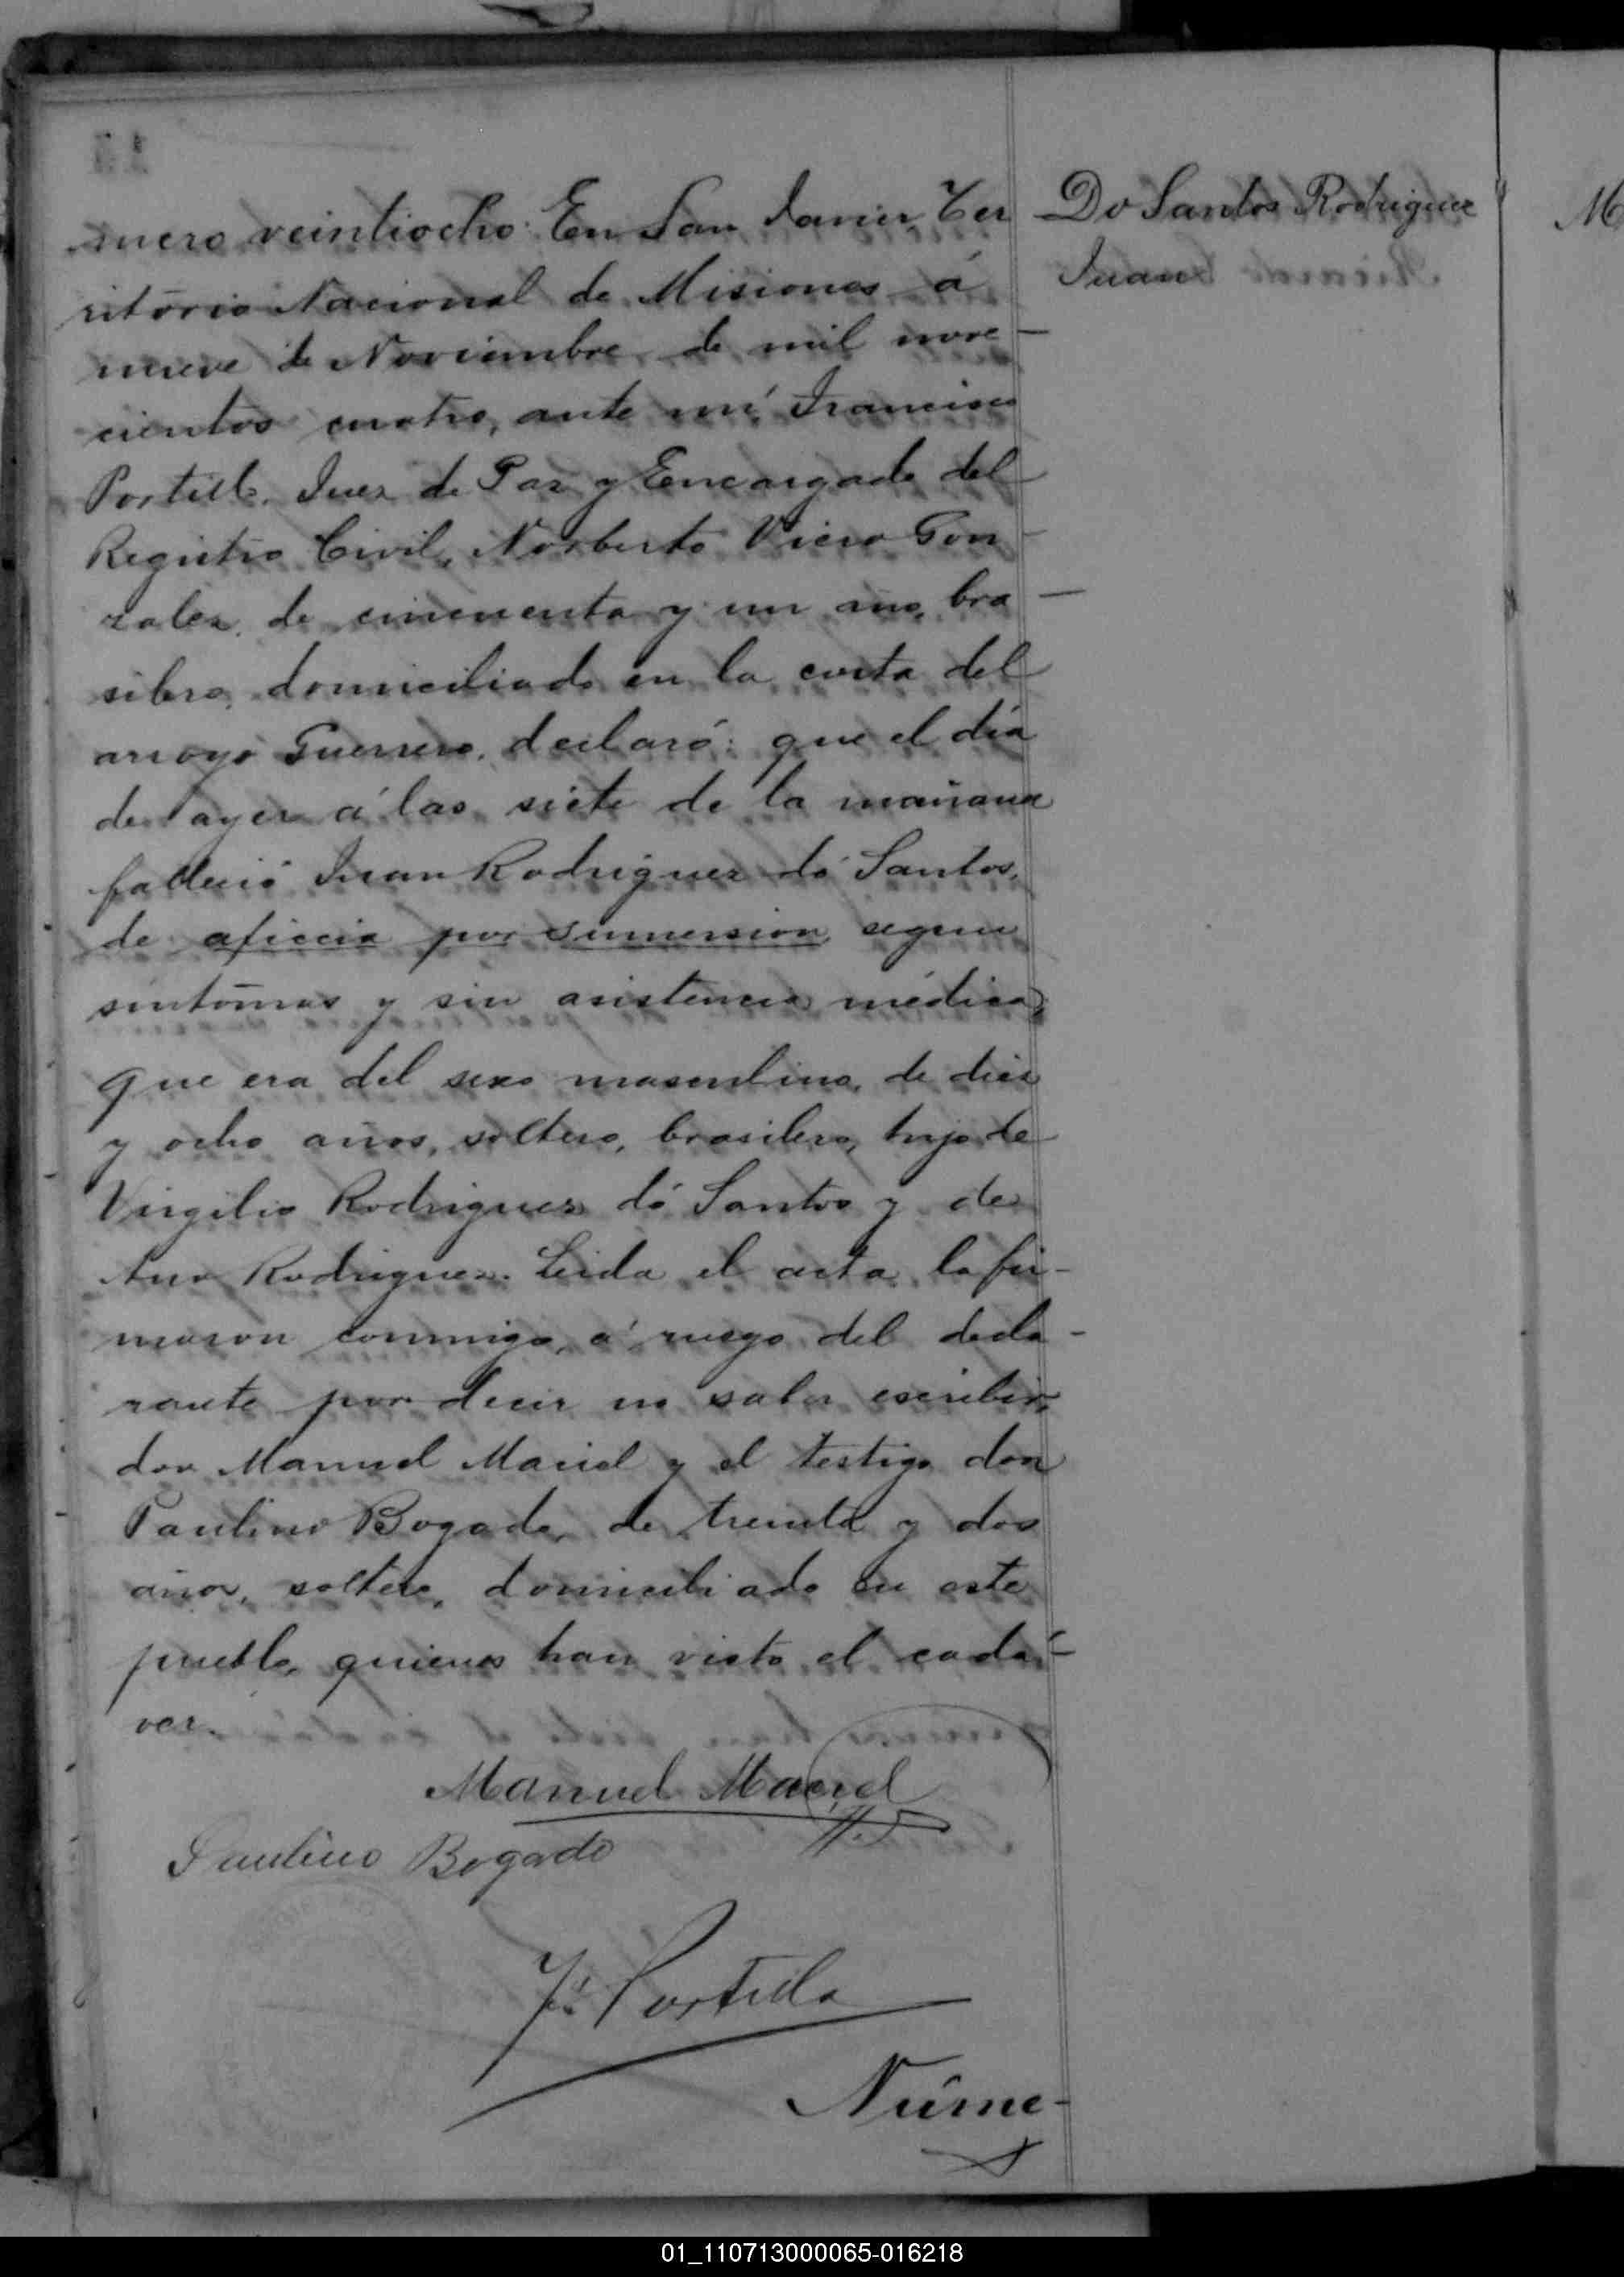 mero veintiocho: En San Javier, Ter
ritorio Nacional de Misiones á
nueve de Noviembre de mil nove
cientos cuatro, ante mí, Francisco
Portillo, Juez de Paz y Encargado del
Registro Civil, Norberto Viera Gon
zalez, de cincuenta y un año, bra
silero, domiciliado en la costa del
arroyo Guerrero, declaró: que el día
de ayer á las siete de la mañana
falleció Juan Rodriguez dó Santos,
de aficcia por sumersion segun
sintomas y sin asistencia médica;
que era del sexo masculino, de diez
y ocho años, soltero, brasilero, hijo de
Virgilio Rodriguez dó Santos y de
Ana Rodriguez. Leida el acta, la fir-
maron conmigo, á ruego del decla-
rante por decir no saber escribir,
don Manuel Maciel y el testigo don
Paulino Bogado, de treinta y dos
años, soltero, domiciliado en este
pueblo, quienes han visto el cadá-
ver.
Manuel Maciel
Paulino Bogado
F. Portillo
Núme-
Do Santos Rodriguez
Juan
M
01_110713000065-016218